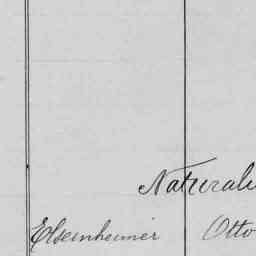 Naturali
Elsenheimer Otto